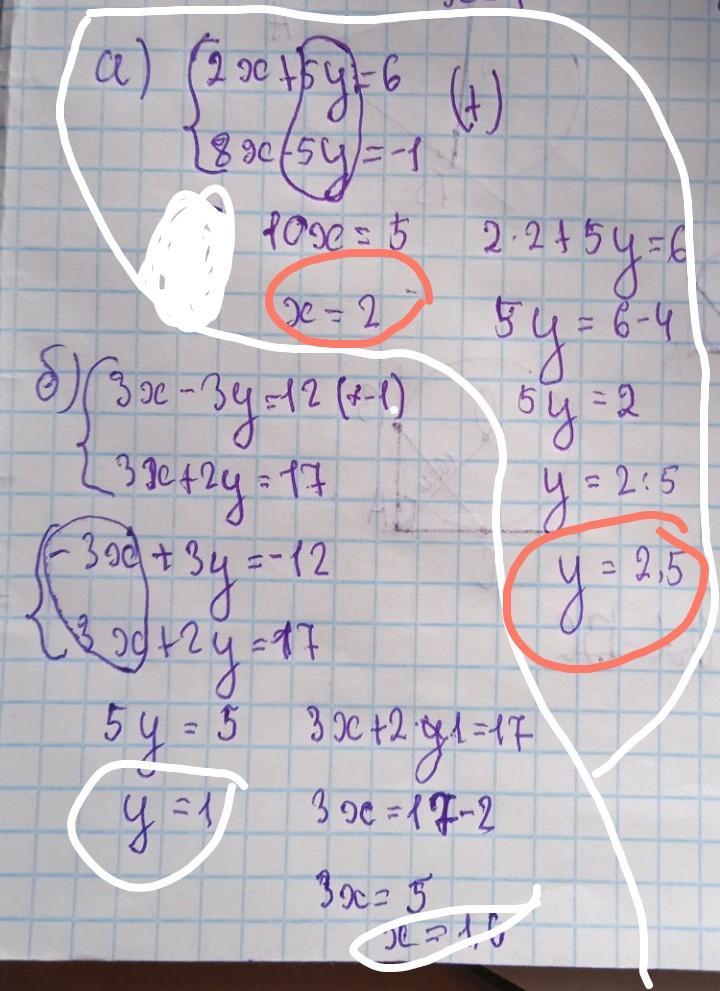 а) 2x+5y=6 (+)
8x-5y=-1
10x=5
x=2
2·2+5y=6
5y=6-4
5y=2
y=2:5
y=2,5
б) 3x-3y=12 (·-1)
3x+2y=17
-3x+3y=-12
3x+2y=17
5y=5
y=1
3x+2·y1=17
3x=17-2
3x=5